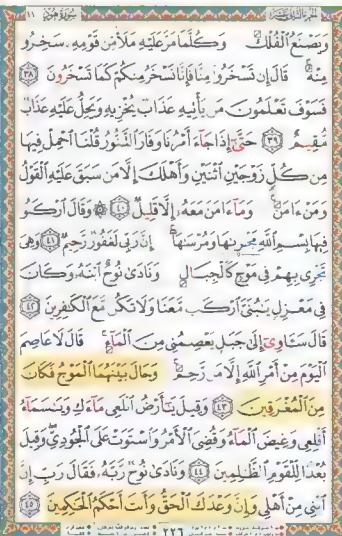 سُورَةُ هُودٍ ١١
وَيَصْنَعُ الْفُلْكَ وَكُلَّمَا مَرَّ عَلَيْهِ مَلَأٌ مِّن قَوْمِهِ سَخِرُوا
مِنْهُ قَالَ إِن تَسْخَرُوا مِنَّا فَإِنَّا نَسْخَرُ مِنكُمْ كَمَا تَسْخَرُونَ ٣٨
فَسَوْفَ تَعْلَمُونَ مَن يَأْتِيهِ عَذَابٌ يُخْزِيهِ وَيَحِلُّ عَلَيْهِ عَذَابٌ
مُّقِيمٌ ٣٩ حَتَّىٰ إِذَا جَاءَ أَمْرُنَا وَفَارَ التَّنُّورُ قُلْنَا احْمِلْ فِيهَا
مِن كُلٍّ زَوْجَيْنِ اثْنَيْنِ وَأَهْلَكَ إِلَّا مَن سَبَقَ عَلَيْهِ الْقَوْلُ
وَمَنْ ءَامَنَ وَمَا ءَامَنَ مَعَهُ إِلَّا قَلِيلٌ ٤٠ ۞ وَقَالَ ارْكَبُوا
فِيهَا بِسْمِ اللَّهِ مَجْرٜىٰهَا وَمُرْسَىٰهَا إِنَّ رَبِّي لَغَفُورٌ رَّحِيمٌ ٤١ وَهِيَ
تَجْرِي بِهِمْ فِي مَوْجٍ كَالْجِبَالِ وَنَادَىٰ نُوحٌ ابْنَهُ وَكَانَ
فِي مَعْزِلٍ يَٰبُنَيَّ ارْكَب مَّعَنَا وَلَا تَكُن مَّعَ الْكَٰفِرِينَ ٤٢
قَالَ سَـَٔاوِي إِلَىٰ جَبَلٍ يَعْصِمُنِي مِنَ الْمَاءِ قَالَ لَا عَاصِمَ
الْيَوْمَ مِنْ أَمْرِ اللَّهِ إِلَّا مَن رَّحِمَ وَحَالَ بَيْنَهُمَا الْمَوْجُ فَكَانَ
مِنَ الْمُغْرَقِينَ ٤٣ وَقِيلَ يَٰٓأَرْضُ ابْلَعِي مَاءَكِ وَيَٰسَمَاءُ
أَقْلِعِي وَغِيضَ الْمَاءُ وَقُضِيَ الْأَمْرُ وَاسْتَوَتْ عَلَى الْجُودِيِّ وَقِيلَ
بُعْدًا لِّلْقَوْمِ الظَّٰلِمِينَ ٤٤ وَنَادَىٰ نُوحٌ رَّبَّهُ فَقَالَ رَبِّ إِنَّ
ابْنِي مِنْ أَهْلِي وَإِنَّ وَعْدَكَ الْحَقُّ وَأَنتَ أَحْكَمُ الْحَٰكِمِينَ ٤٥
٢٢٦